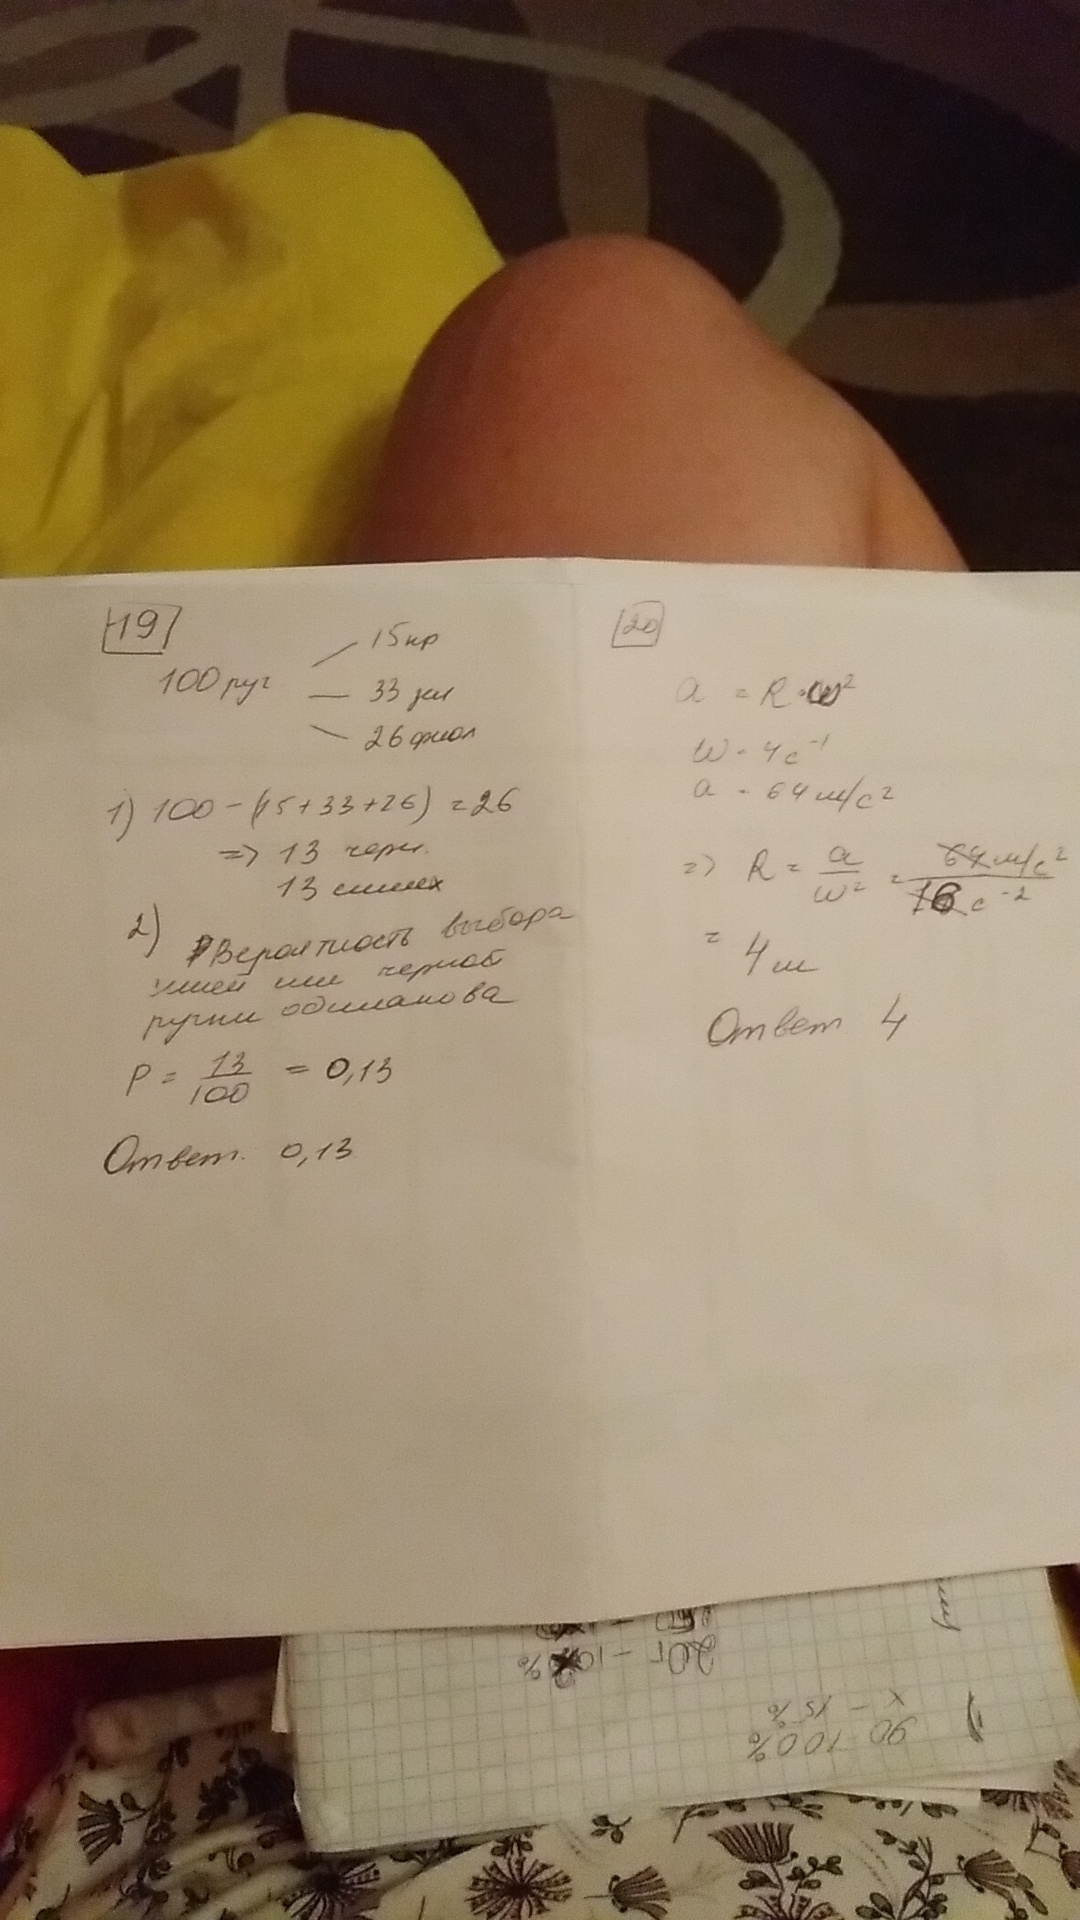 19
100 руч
15 кр
33 зел
26 фиол
1) 100 - (15+33+26) = 26
=> 13 черн.
13 синих
2) Вероятность выбора
синей или черной
ручки одинакова
P = 13/100 = 0,13
Ответ. 0,13
20
a = R·ω²
ω = 4 с⁻¹
a = 64 м/с²
=> R = a/ω² = 64 м/с² / 16 с⁻²
= 4 м
Ответ 4
20г - 10 %
90 - 100%
x - 15%